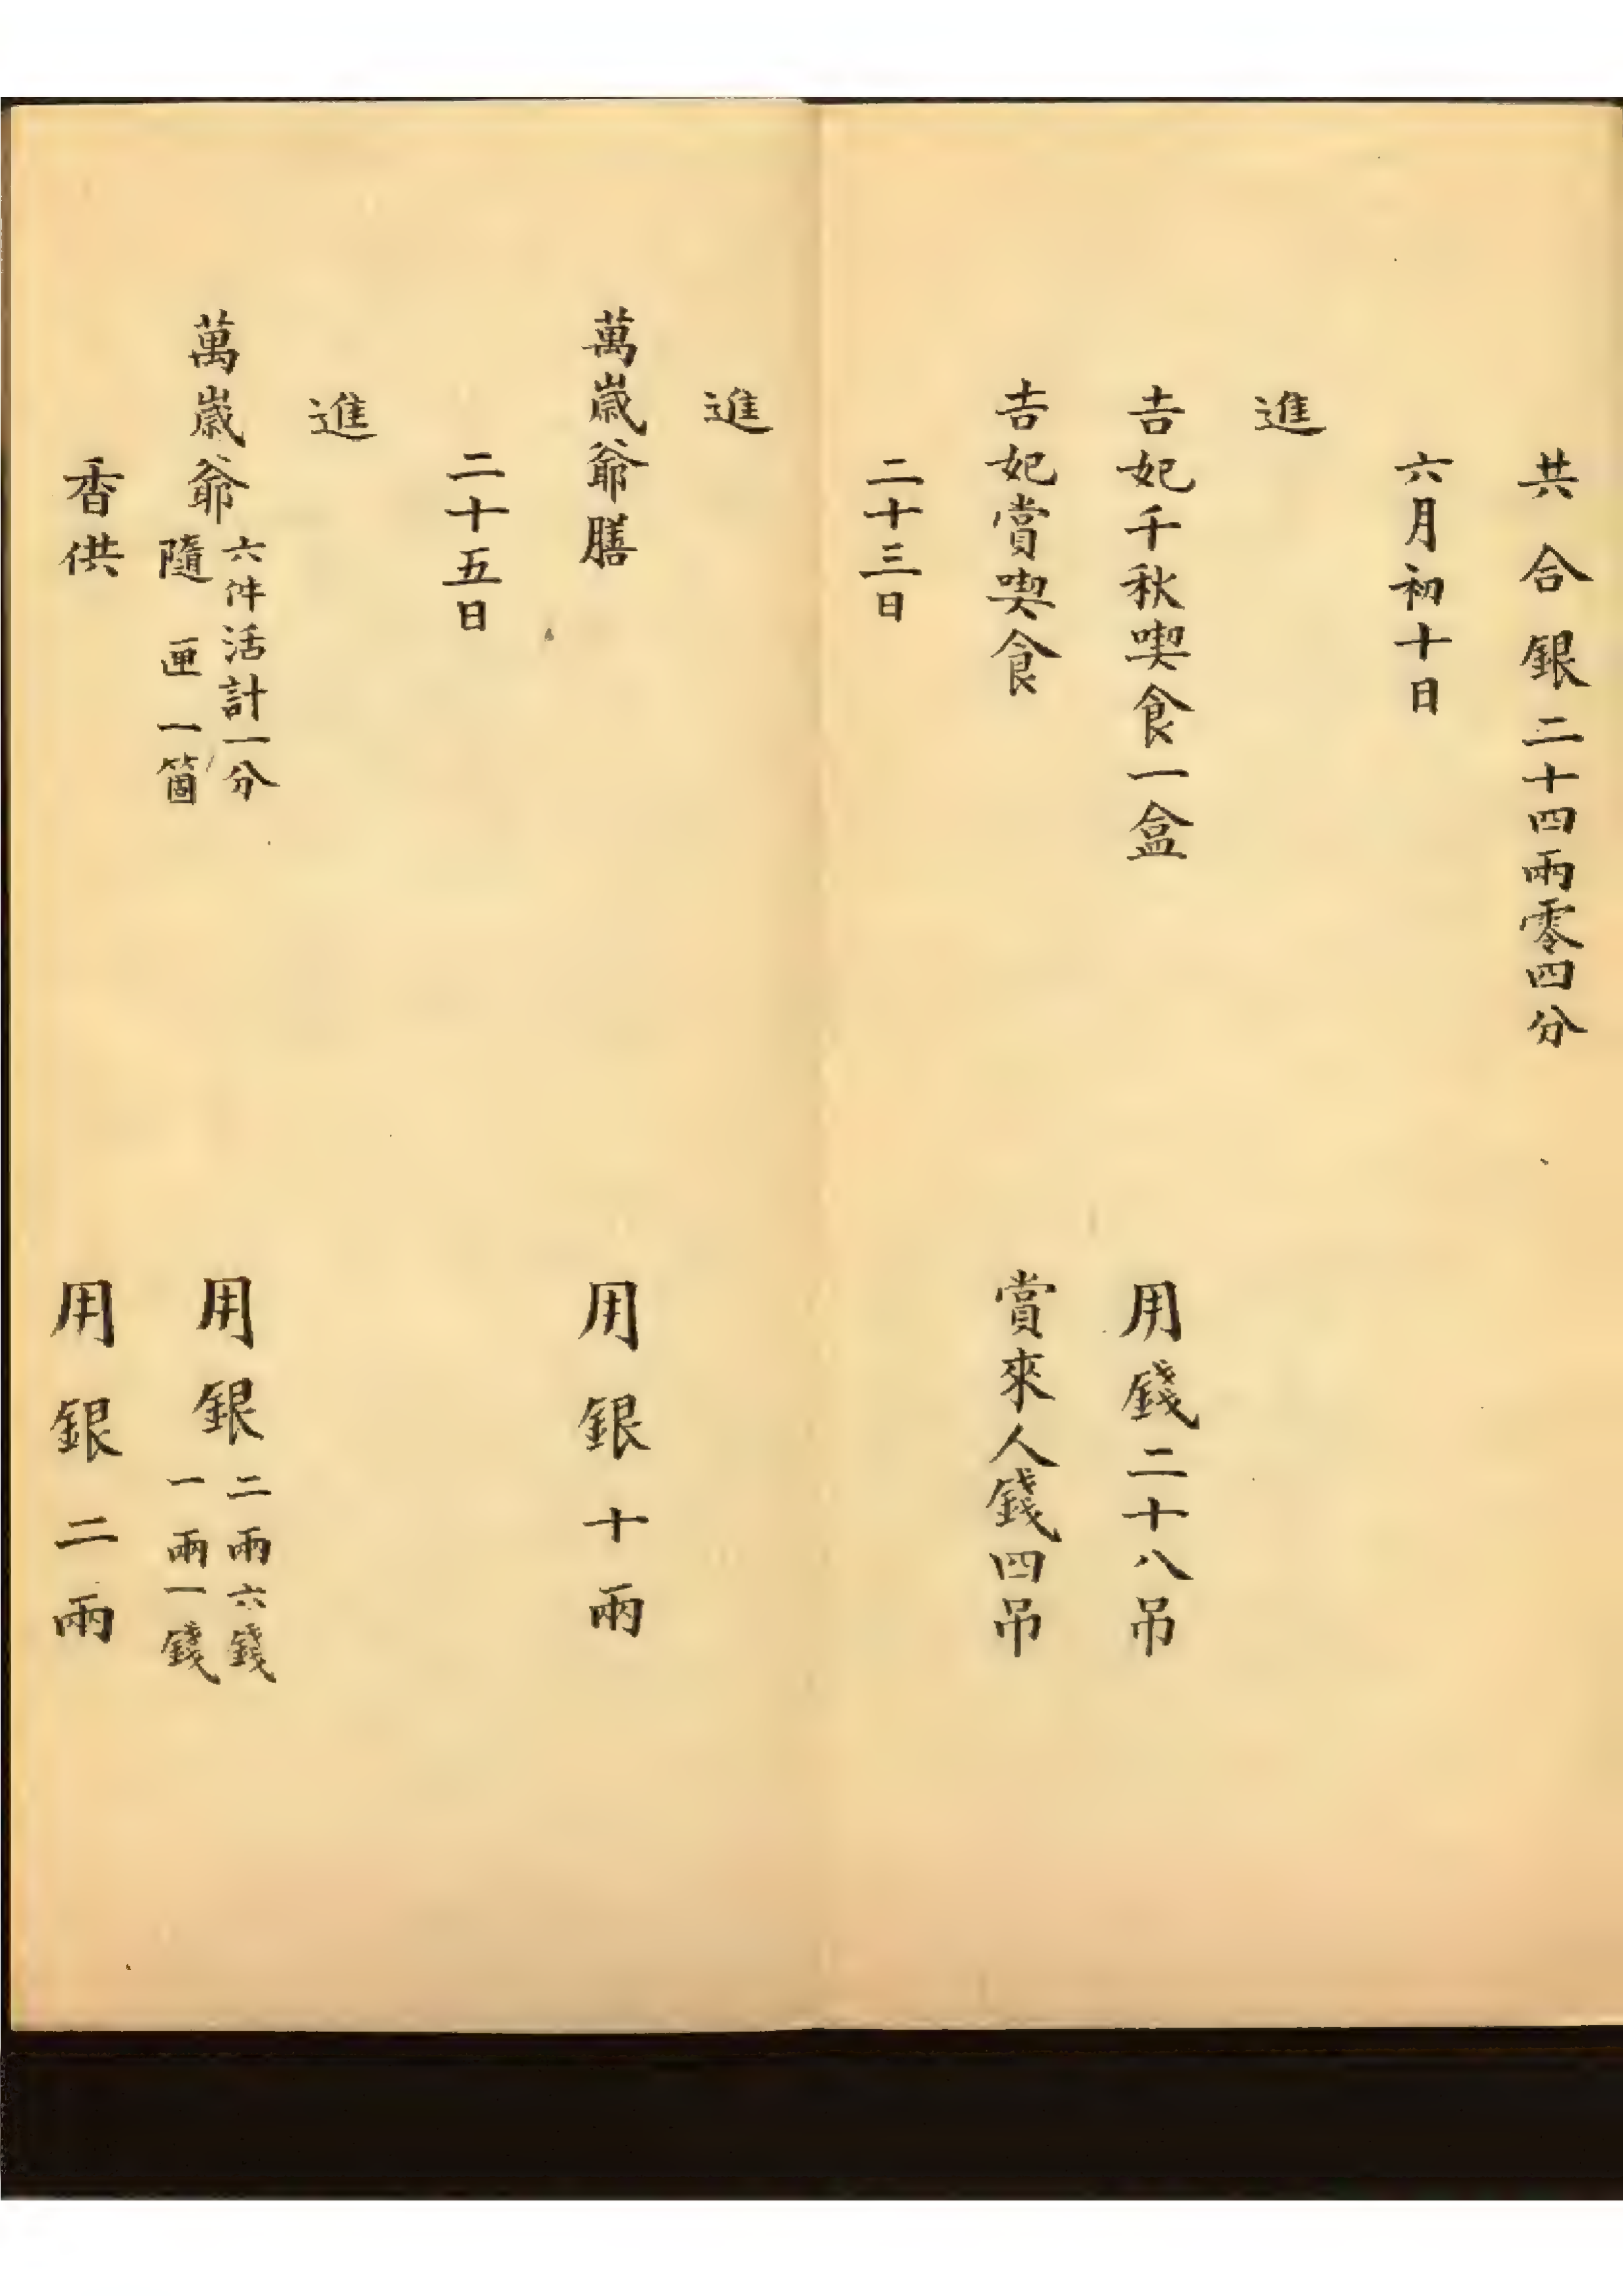 共合銀二十四兩零四分
六月初十日
進
吉妃千秋喫食一盒　用錢二十八吊
吉妃賞喫食　賞來人錢四吊
二十三日
進
萬歲爺膳　用銀十兩
二十五日
進
萬歲爺　六件活計一分　用銀　二兩六錢
隨匣一箇　一兩一錢
香供　用銀二兩